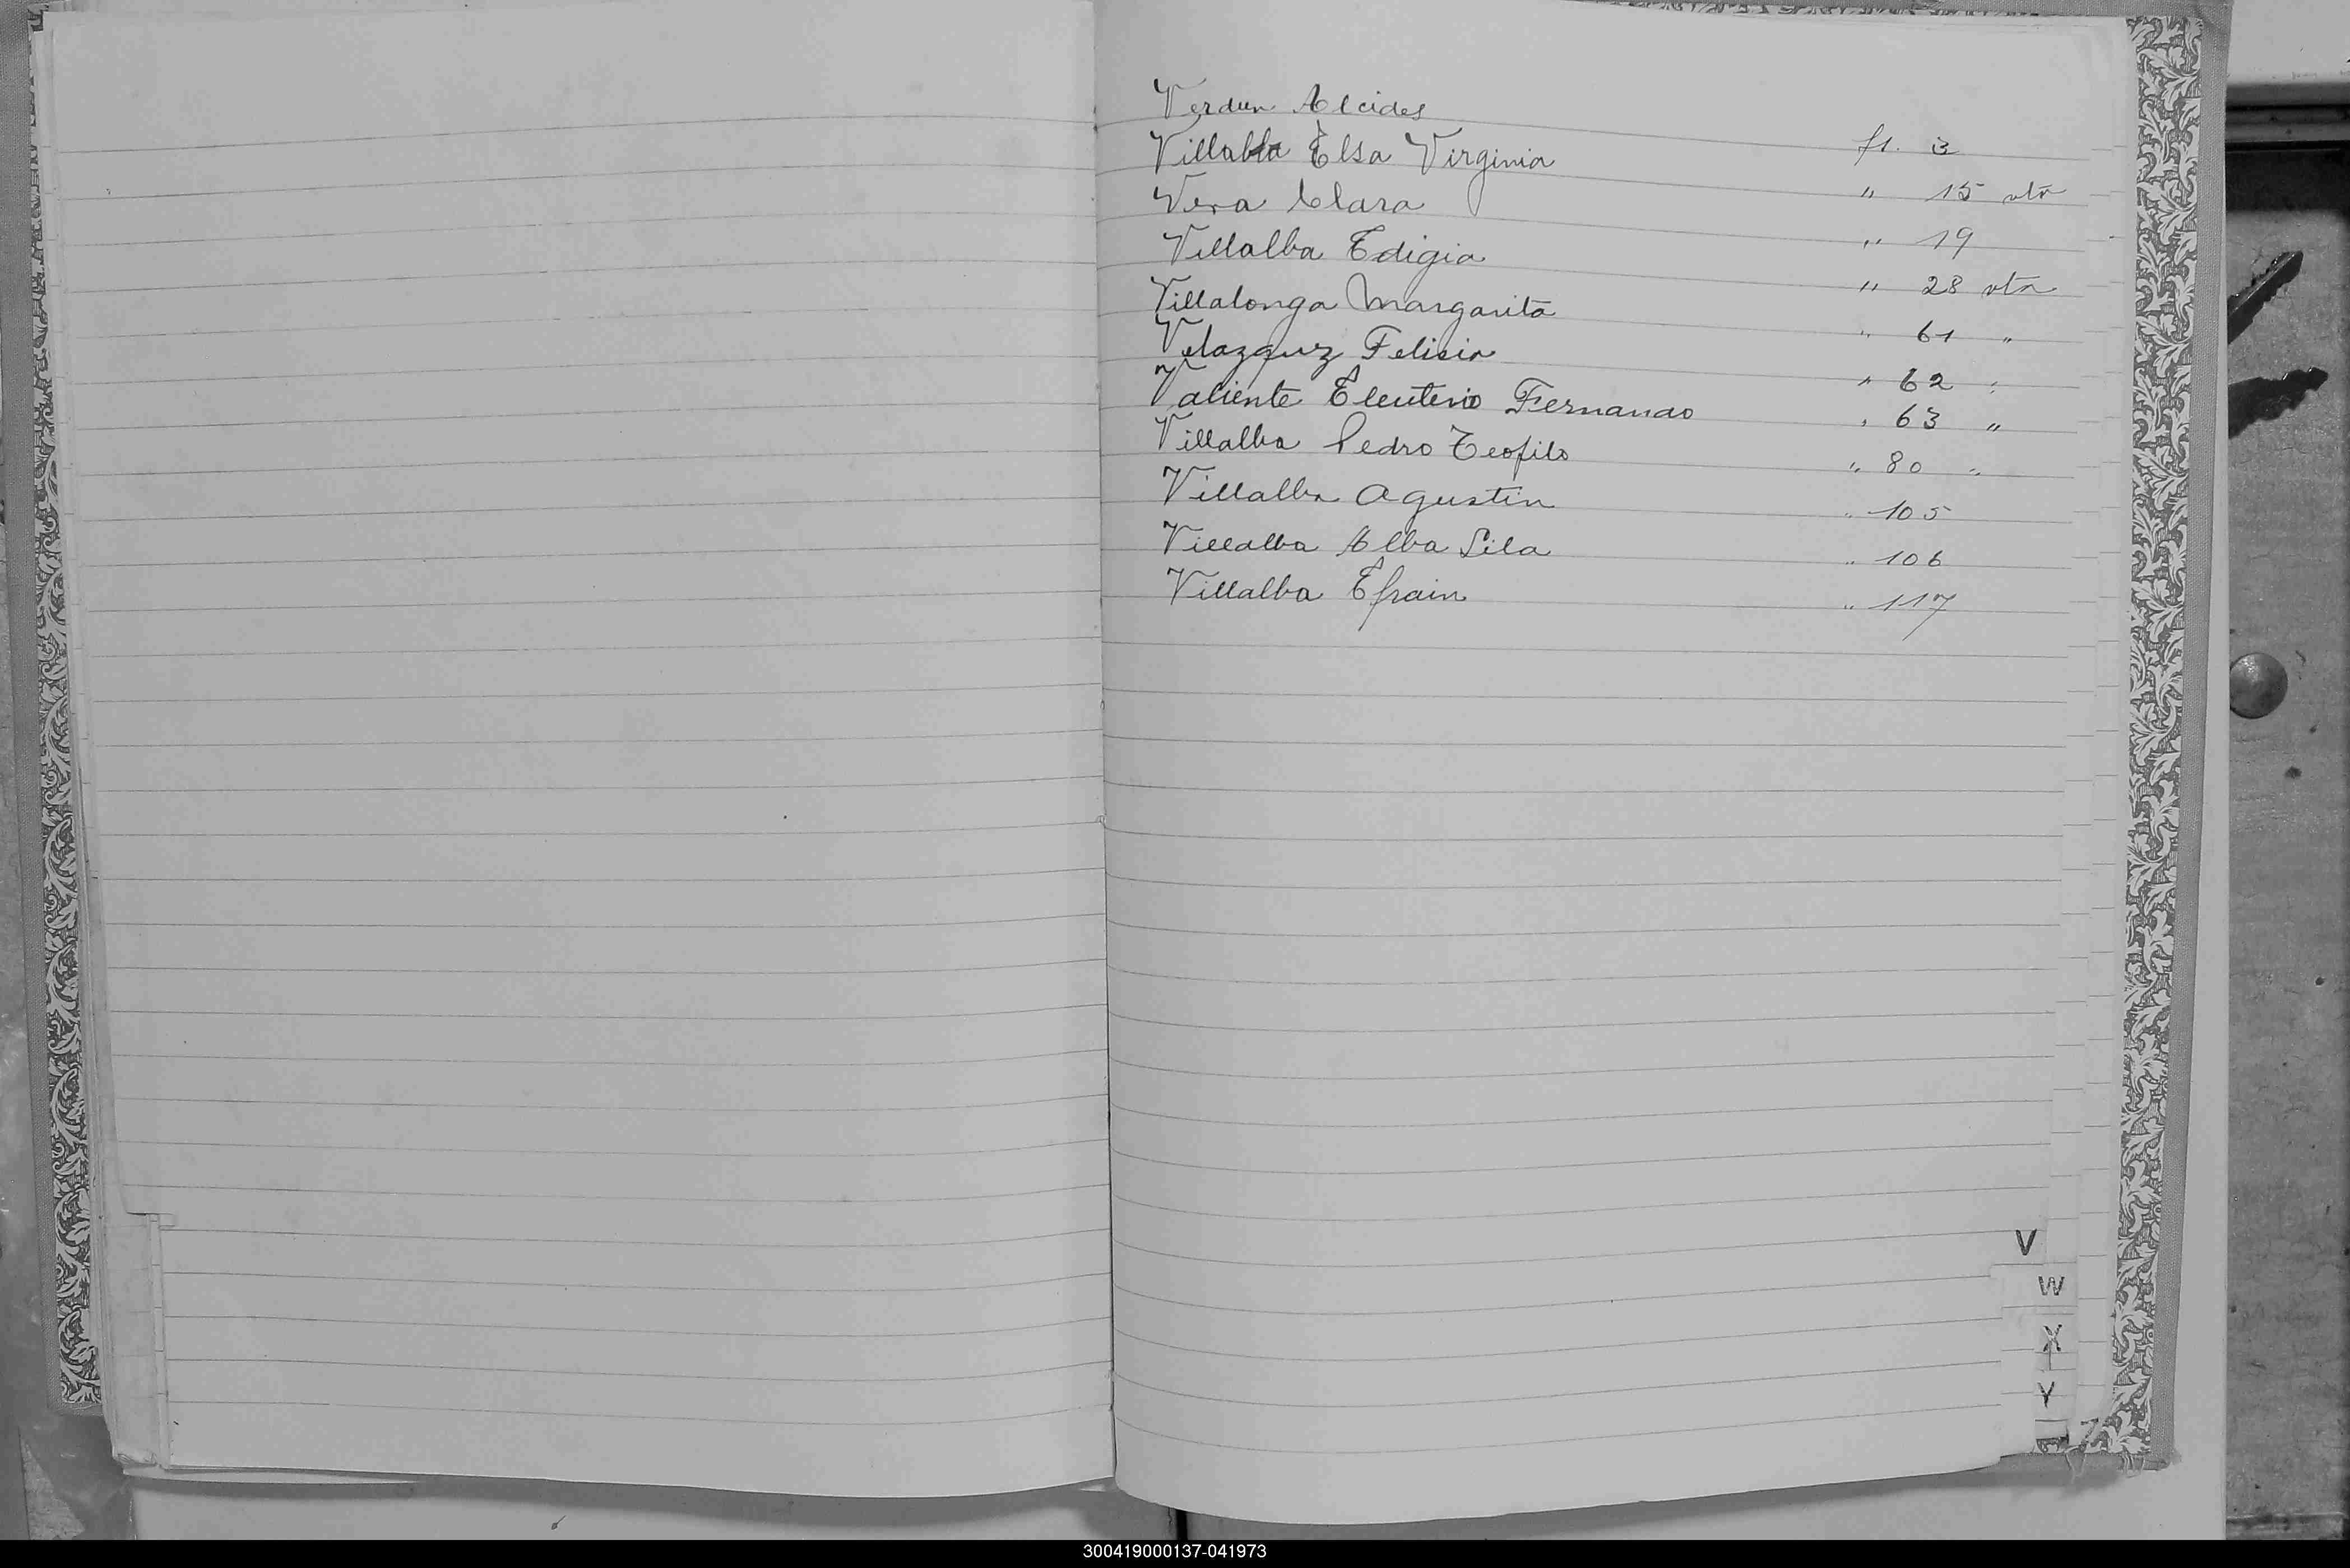 Verdun Alcides fl. 3
Villalba Elsa Virginia " 15 vta
Vera Clara " 19
Villalba Edigia " 28 vta
Villalonga Margarita " 61 "
Velazquz Felicia " 62 "
Valiente Eleuterio Fernando " 63 "
Villalba Pedro Teofilo " 80 "
Villalba Agustin " 105
Villalba Alba Lila " 106
Villalba Efrain " 117
V
W
X
Y
Z
300419000137-041973